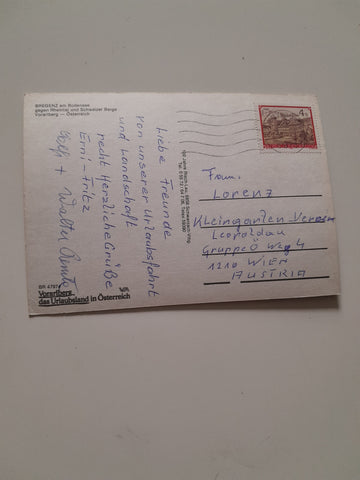 BREGENZ am Bodensee
gegen Rheintal und Schweizer Berge
Vorarlberg — Österreich
Liebe Freunde
von unserer Urlaubsfahrt
und Landschaft
recht Herzliche Grüße
Erni - Fritz
+ Walter
BR 47974
Vorarlberg
das Urlaubsland in Österreich
4 S
Fam.
Lorenz
Kleingarten Verein
Leopoldau
Gruppe Ö Weg 4
1210 WIEN
AUSTRIA